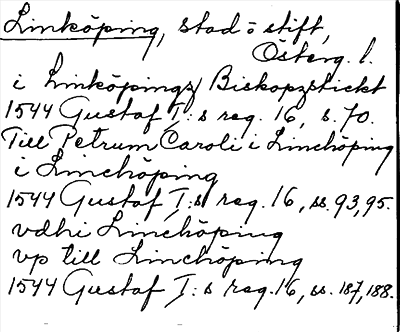 Linköping, stad o stift,
Österg. l.
i Linköpings Biskopzstickt
1544 Gustaf I:s reg. 16, s. 70.
Till Petrum Caroli i Linchöping
i Linchöping
1544 Gustaf I:s reg. 16, ss. 93, 95.
vdhi Linchöping
vp till Linchöping
1544 Gustaf I:s reg. 16, ss. 187, 188.